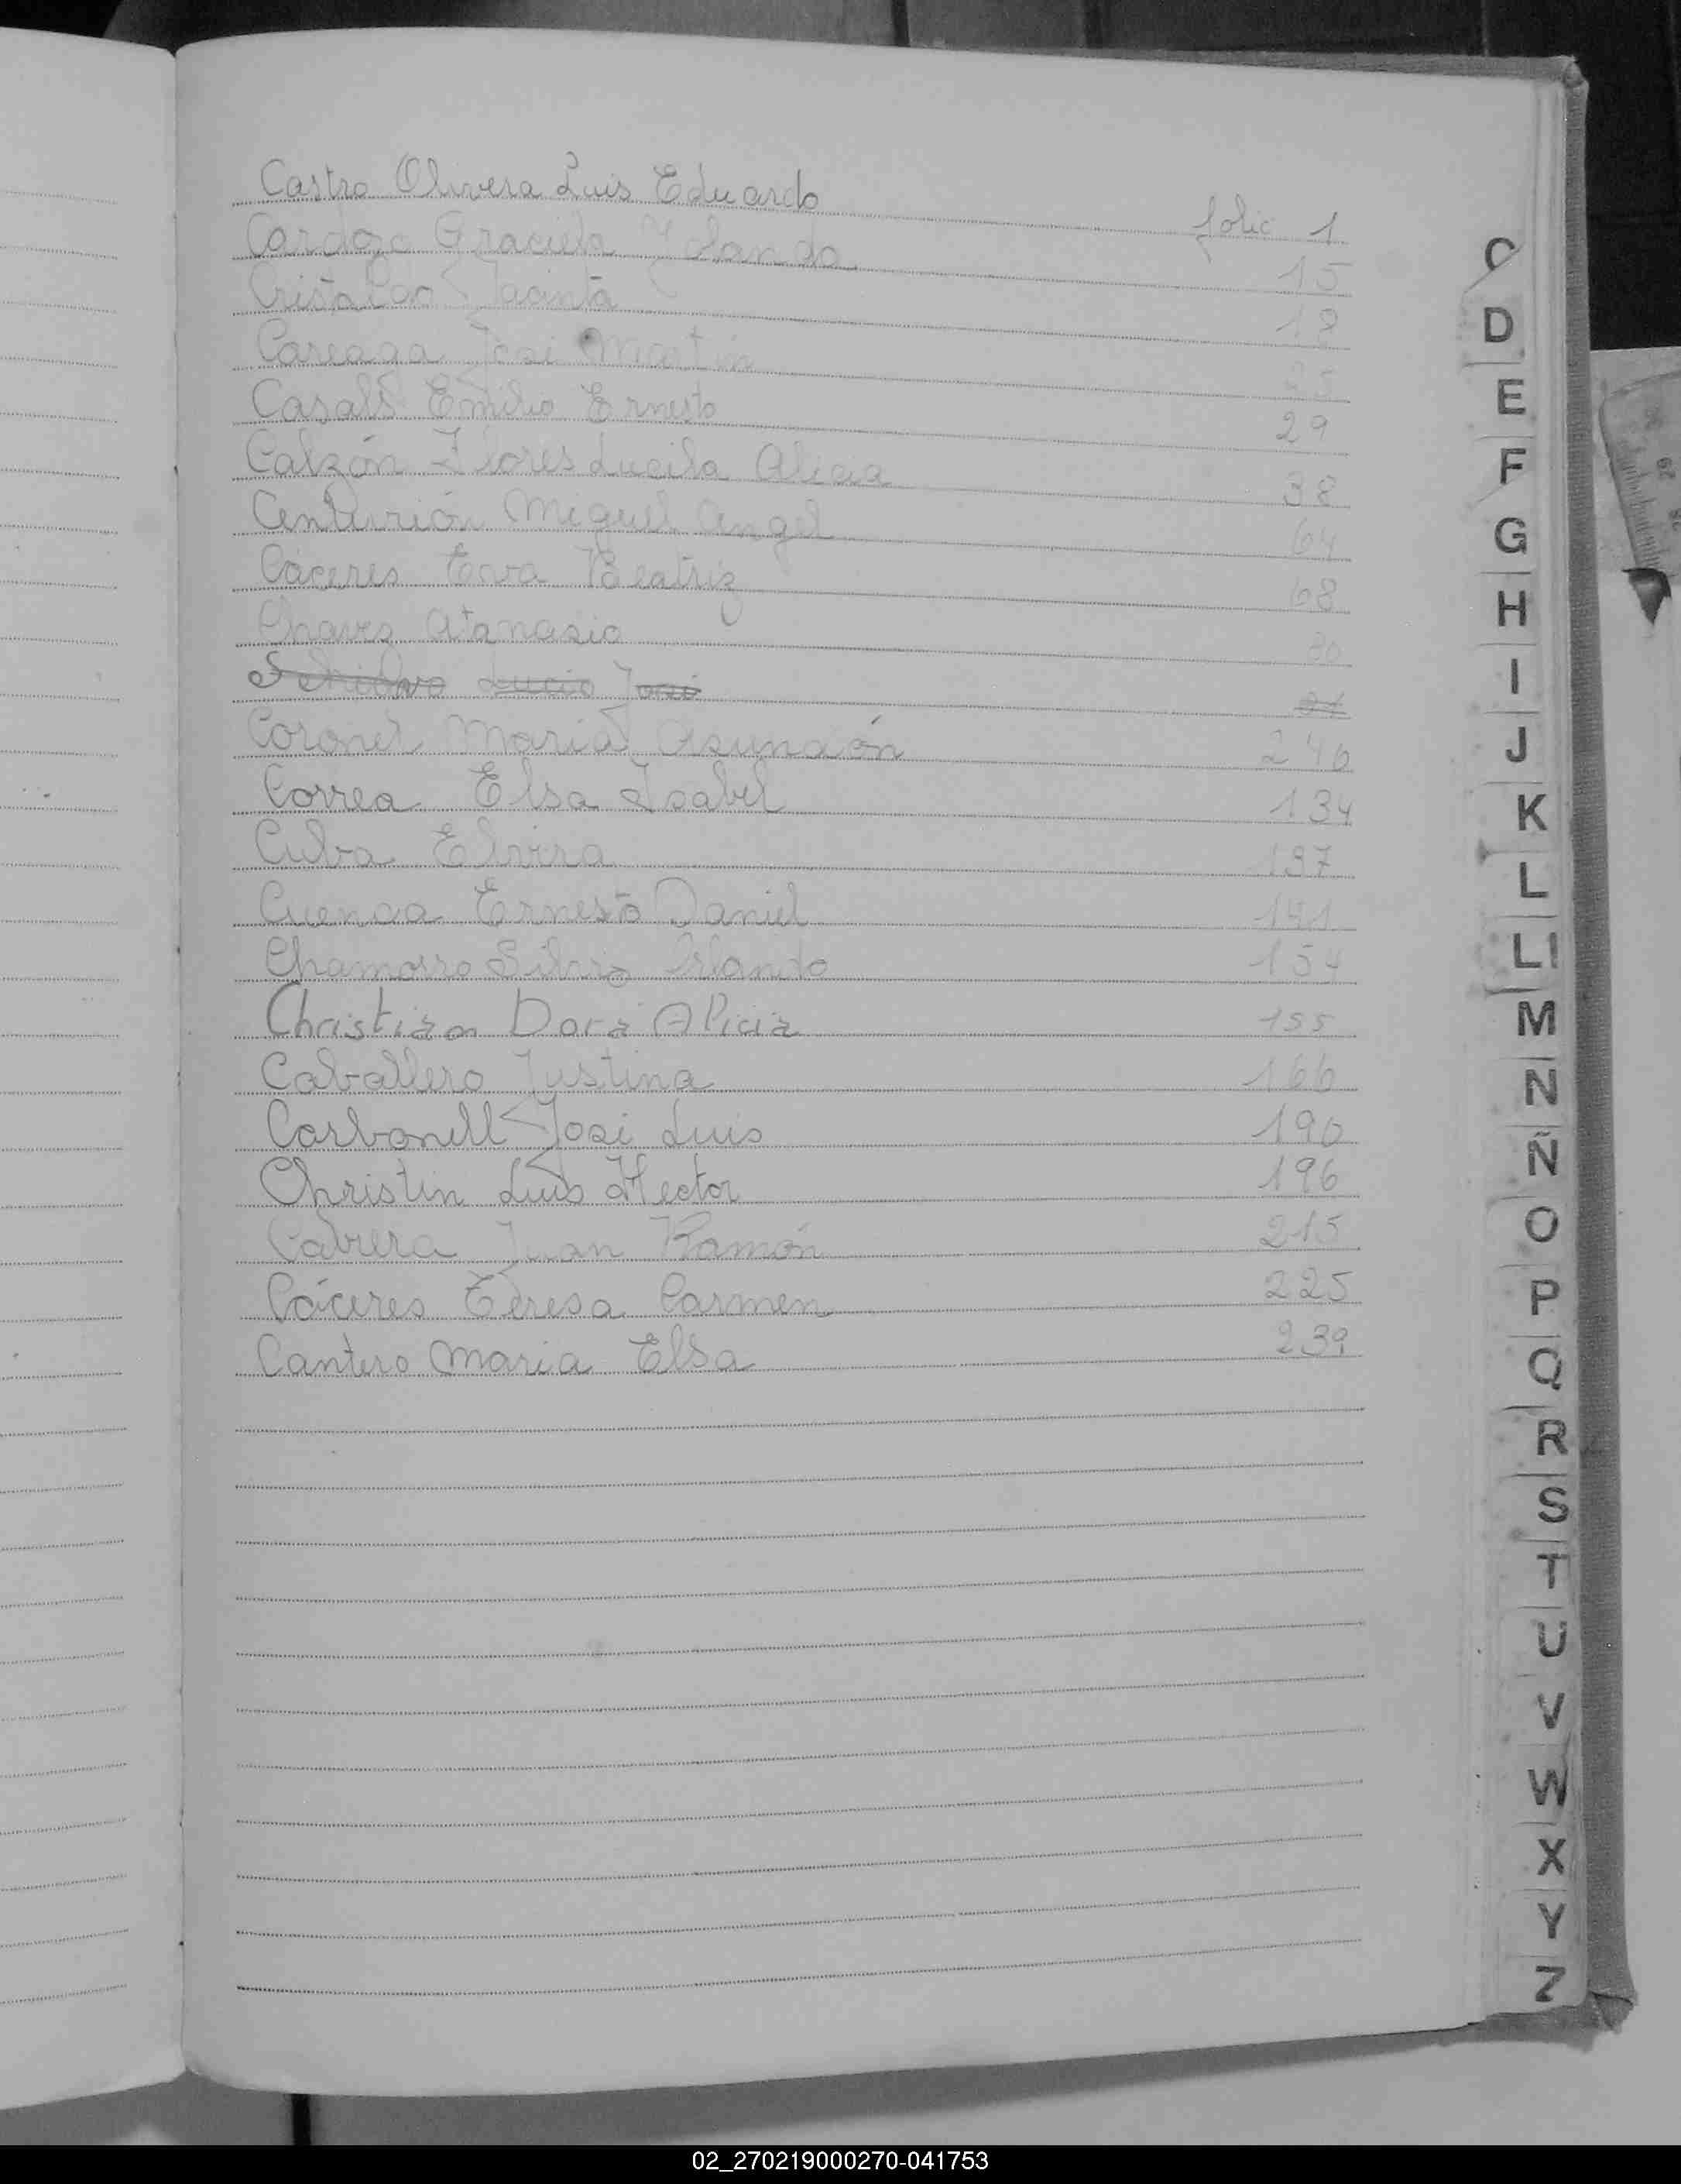 Castro Olivera Luis Eduardo folio 1
Cardozo Graciela Yolanda 15
Jacinta 19
Careaga José Martin 25
Casali Emilio Ernesto 29
Calzón Flores Lucila Alicia 38
Centurión Miguel Angel 64
Cáceres Eva Beatriz 68
Chaves Atanasio 80
Lucio José
Coronel Maria Asunción 246
Correa Elsa Isabel 134
Elvira 137
Cuenca Ernesto Daniel 141
Chamorro Silvio Orlando 154
Christian Dora Alicia 155
Caballero Justina 166
Carbonell José Luis 190
Christin Luis Hector 196
Cabrera Juan Ramón 215
Cáceres Teresa Carmen 225
Cantero Maria Elsa 239
C
D
E
F
G
H
I
J
K
L
Ll
M
N
Ñ
O
P
Q
R
S
T
U
V
W
X
Y
Z
02_270219000270-041753